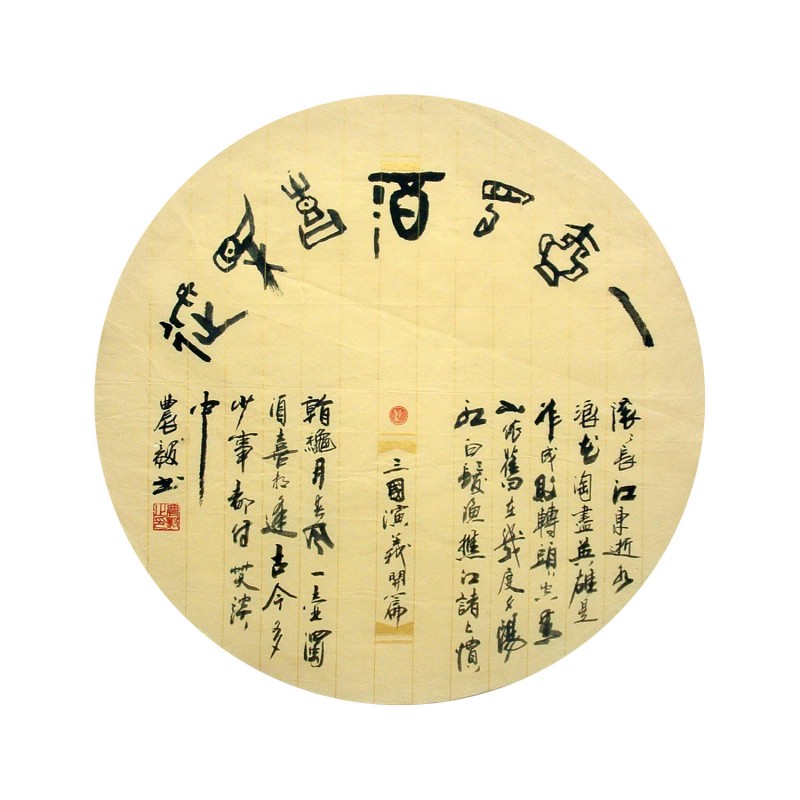 一壺濁酒喜相逢
滚〻長江東逝水
浪花淘盡英雄是
非成敗轉頭空青
山依舊在幾度夕陽
紅白髮漁樵江諸上慣
三國演義開篇
看龝月春風一壺濁
酒喜相逢古今多
少事都付笑談
中
農毅书